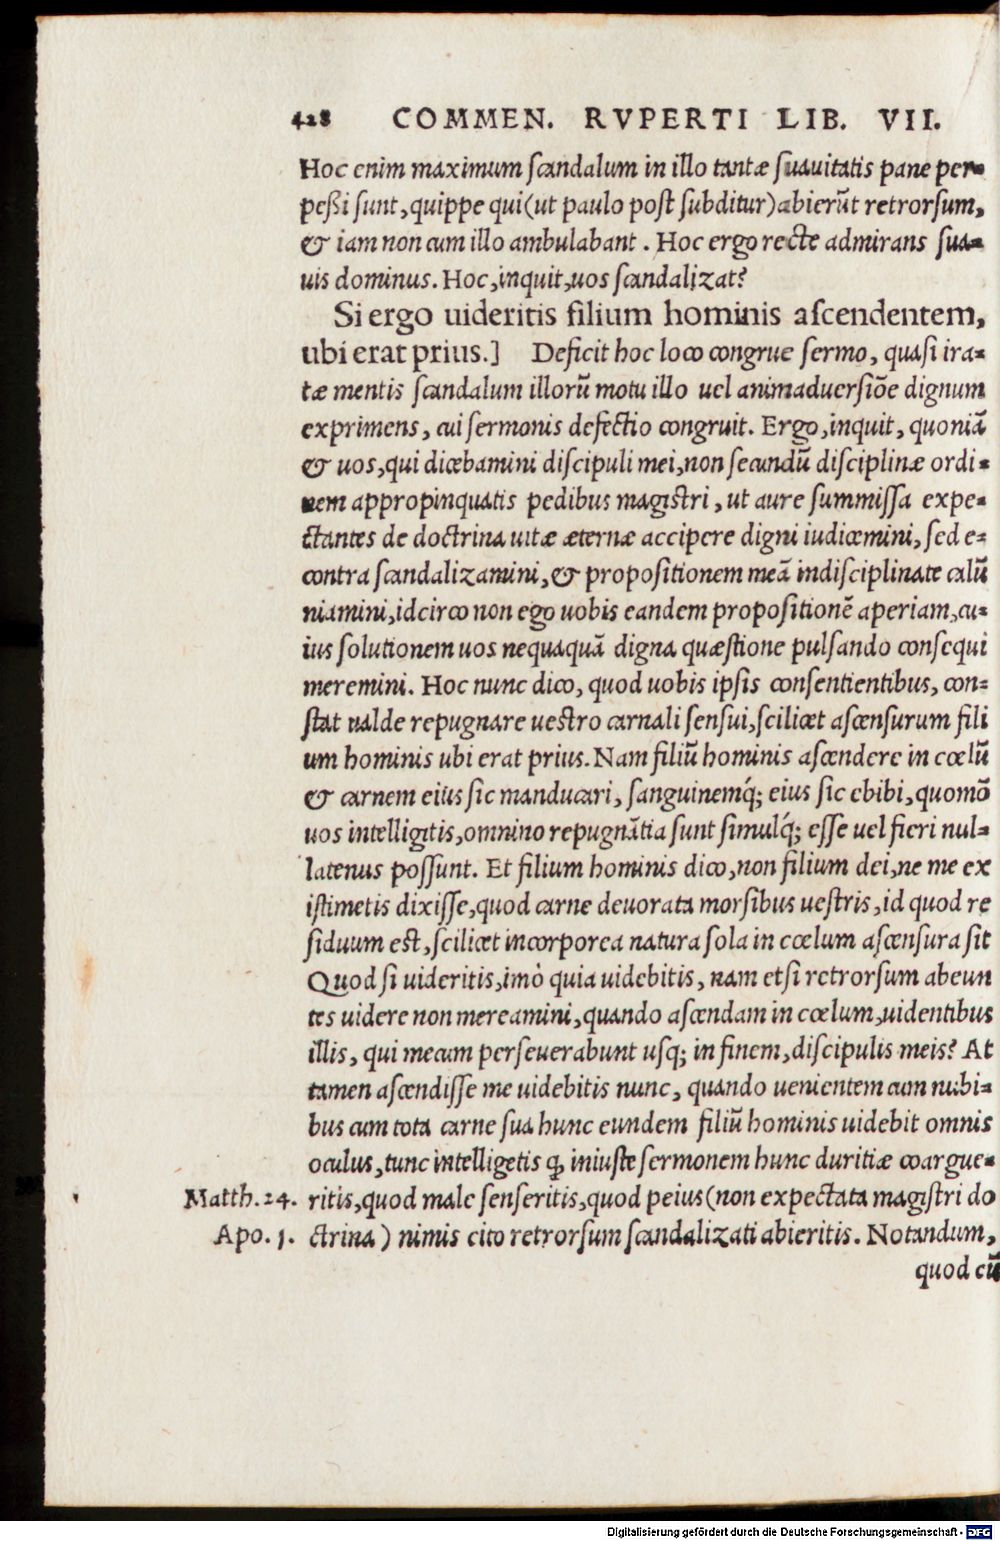 428 COMMEN. RVPERTI LIB. VII.
Hoc enim maximum ſcandalum in illo tantæ ſuauitatis pane per-
peßi ſunt, quippe qui (ut paulo poſt ſubditur) abierūt retrorſum,
& iam non cum illo ambulabant. Hoc ergo recte admirans ſua-
uis dominus. Hoc, inquit, uos ſcandalizat?
Si ergo uideritis filium hominis aſcendentem,
ubi erat prius.] Deficit hoc loco congrue ſermo, quaſi ira-
tæ mentis ſcandalum illorū motu illo uel animaduerſiōe dignum
exprimens, cui ſermonis defectio congruit. Ergo, inquit, quoniā
& uos, qui dicebamini diſcipuli mei, non ſecundū diſciplinæ ordi-
nem appropinquatis pedibus magiſtri, ut aure ſummiſſa expe-
ctantes de doctrina uitæ æternæ accipere digni iudicemini, ſed e-
contra ſcandalizamini, & propoſitionem meā indiſciplinate calū
niamini, idcirco non ego uobis eandem propoſitionē aperiam, cu-
ius ſolutionem uos nequaquā digna quæſtione pulſando conſequi
meremini. Hoc nunc dico, quod uobis ipſis conſentientibus, con-
ſtat ualde repugnare ueſtro carnali ſenſui, ſcilicet aſcenſurum fili
um hominis ubi erat prius. Nam filiū hominis aſcendere in cœlū
& carnem eius ſic manducari, ſanguinemq́; eius ſic ebibi, quomō
uos intelligitis, omnino repugnātia ſunt ſimulq́; eſſe uel fieri nul-
latenus poſſunt. Et filium hominis dico, non filium dei, ne me ex
iſtimetis dixiſſe, quod carne deuorata morſibus ueſtris, id quod re
ſiduum eſt, ſcilicet incorporea natura ſola in cœlum aſcenſura ſit
Quod ſi uideritis, imò quia uidebitis, nam etſi retrorſum abeun
tes uidere non mereamini, quando aſcendam in cœlum, uidentibus
illis, qui mecum perſeuerabunt uſq; in finem, diſcipulis meis? At
tamen aſcendiſſe me uidebitis nunc, quando uenientem cum nubi-
bus cum tota carne ſua hunc eundem filiū hominis uidebit omnis
oculus, tunc intelligetis ꝙ iniuſte ſermonem hunc duritiæ coargue-
Matth. 24. ritis, quod male ſenſeritis, quod peius (non expectata magiſtri do
Apo. 1. ctrina) nimis cito retrorſum ſcandalizati abieritis. Notandum,
quod cū
Digitalisierung gefördert durch die Deutsche Forschungsgemeinschaft - DFG